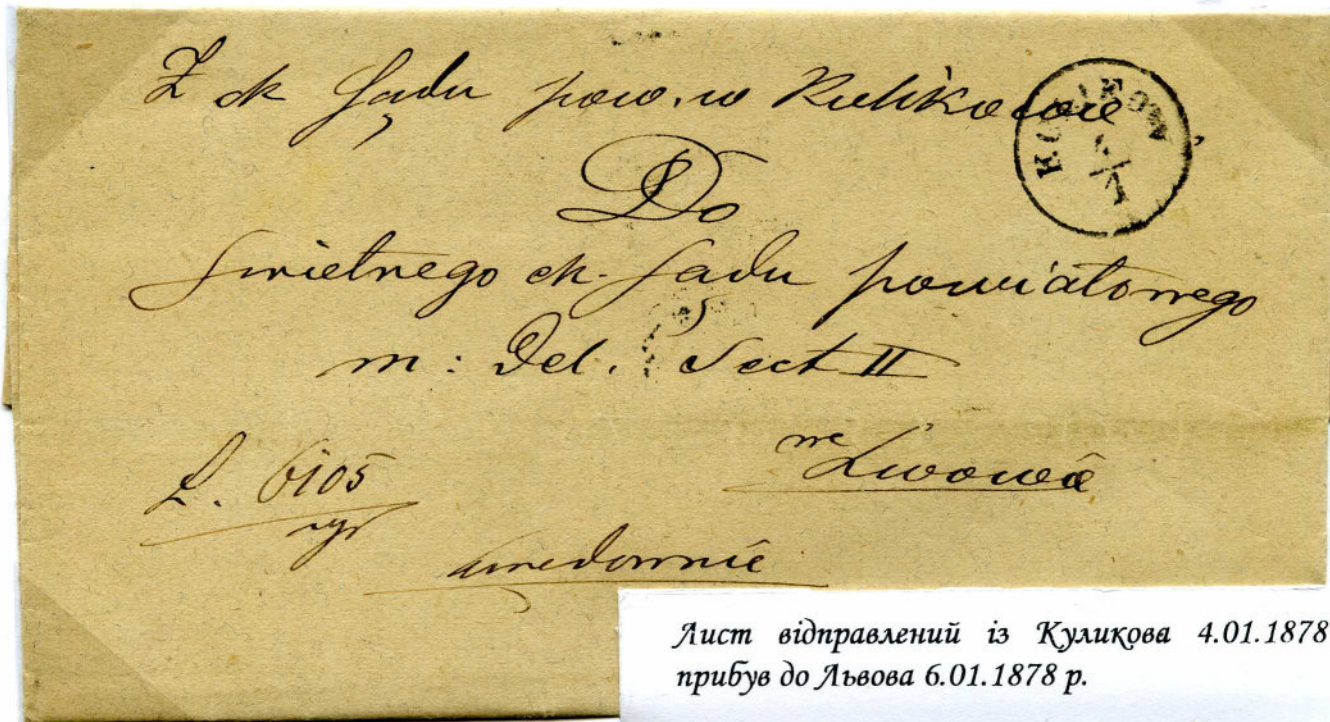 Z ck Sądu pow. w Kulikowie
KULIKOW
4/1
Do
Swietnego ck. Sądu powiatowego
m: Del. Sect II
we Lwowie
L. 6105
urzędownie
Лист відправлений із Куликова 4.01.1878
прибув до Львова 6.01.1878 р.